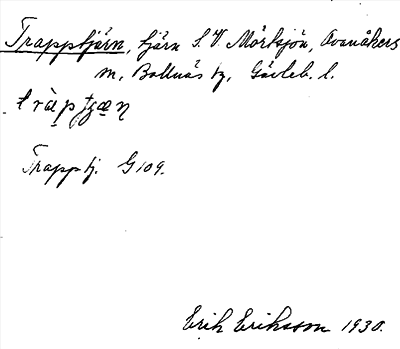 Trapptjärn, tjärn S. V. Mörtsjön, Ovanåkers
m, Bollnäs tg, Gävleb. l.
Trapptj. G 109.
Erik Eriksson 1930.